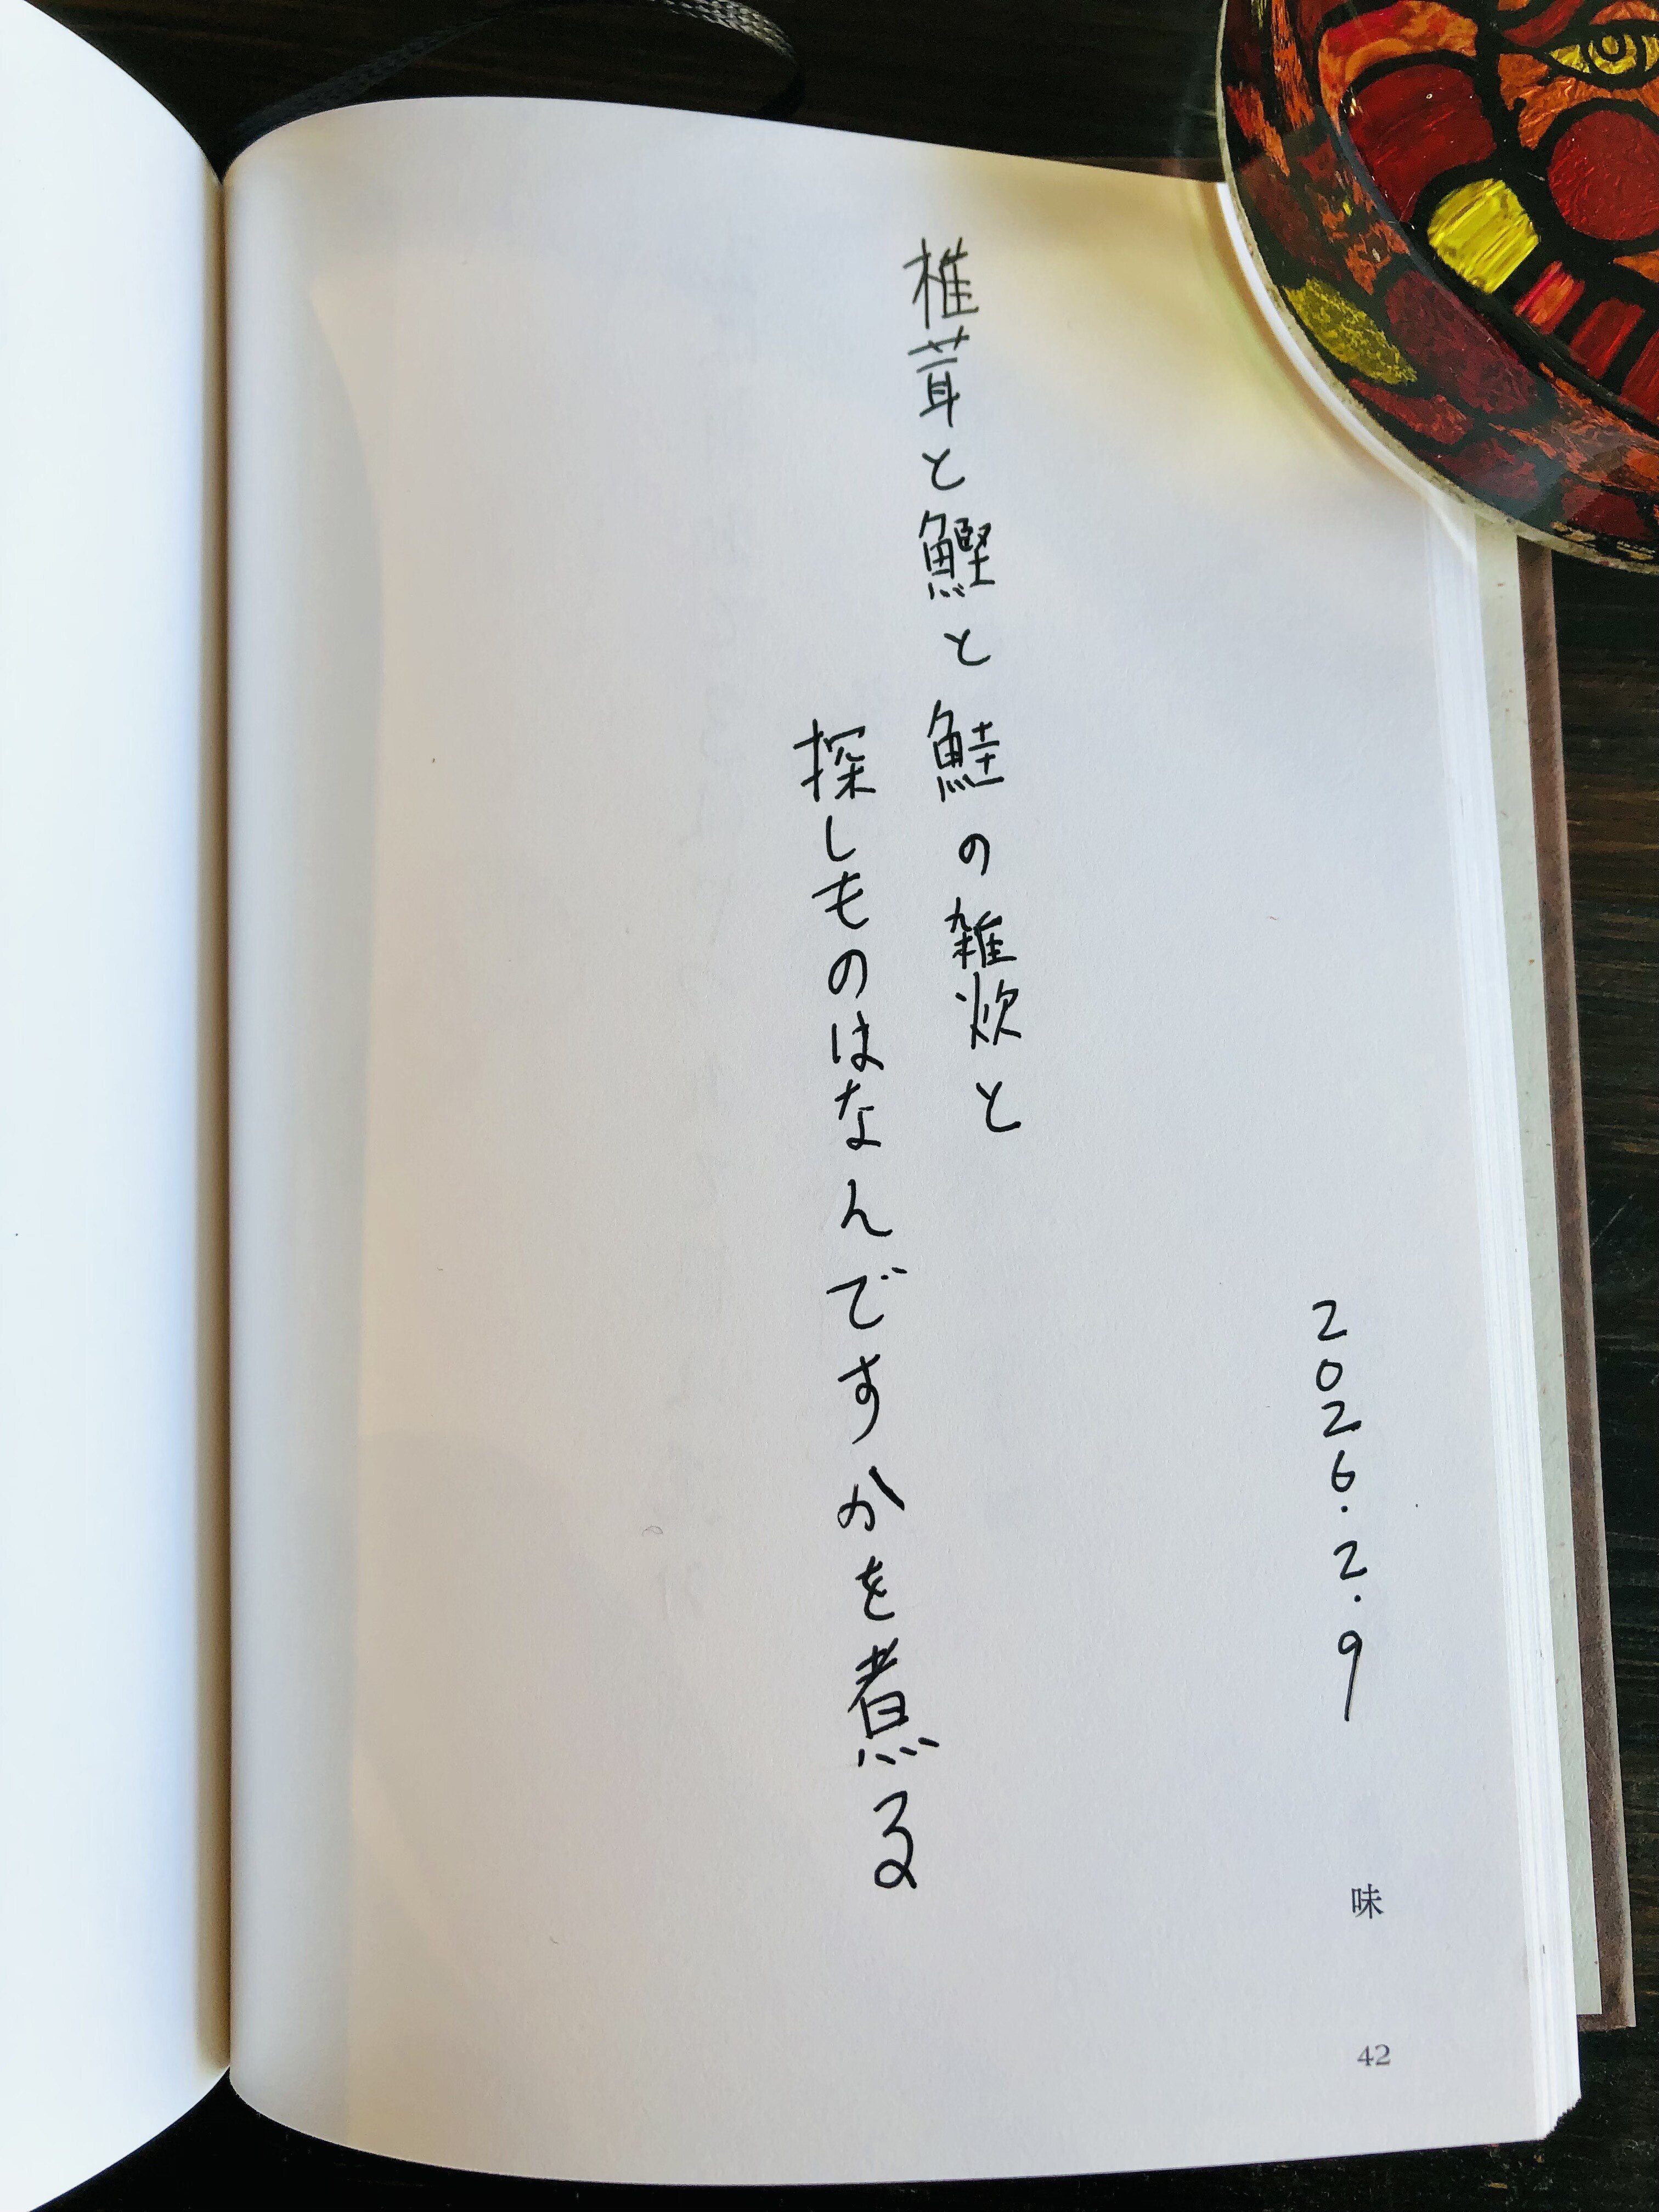 2026.2.9
椎茸と鰹と鮭の雑炊と
探しものはなんですかを煮る
味
42